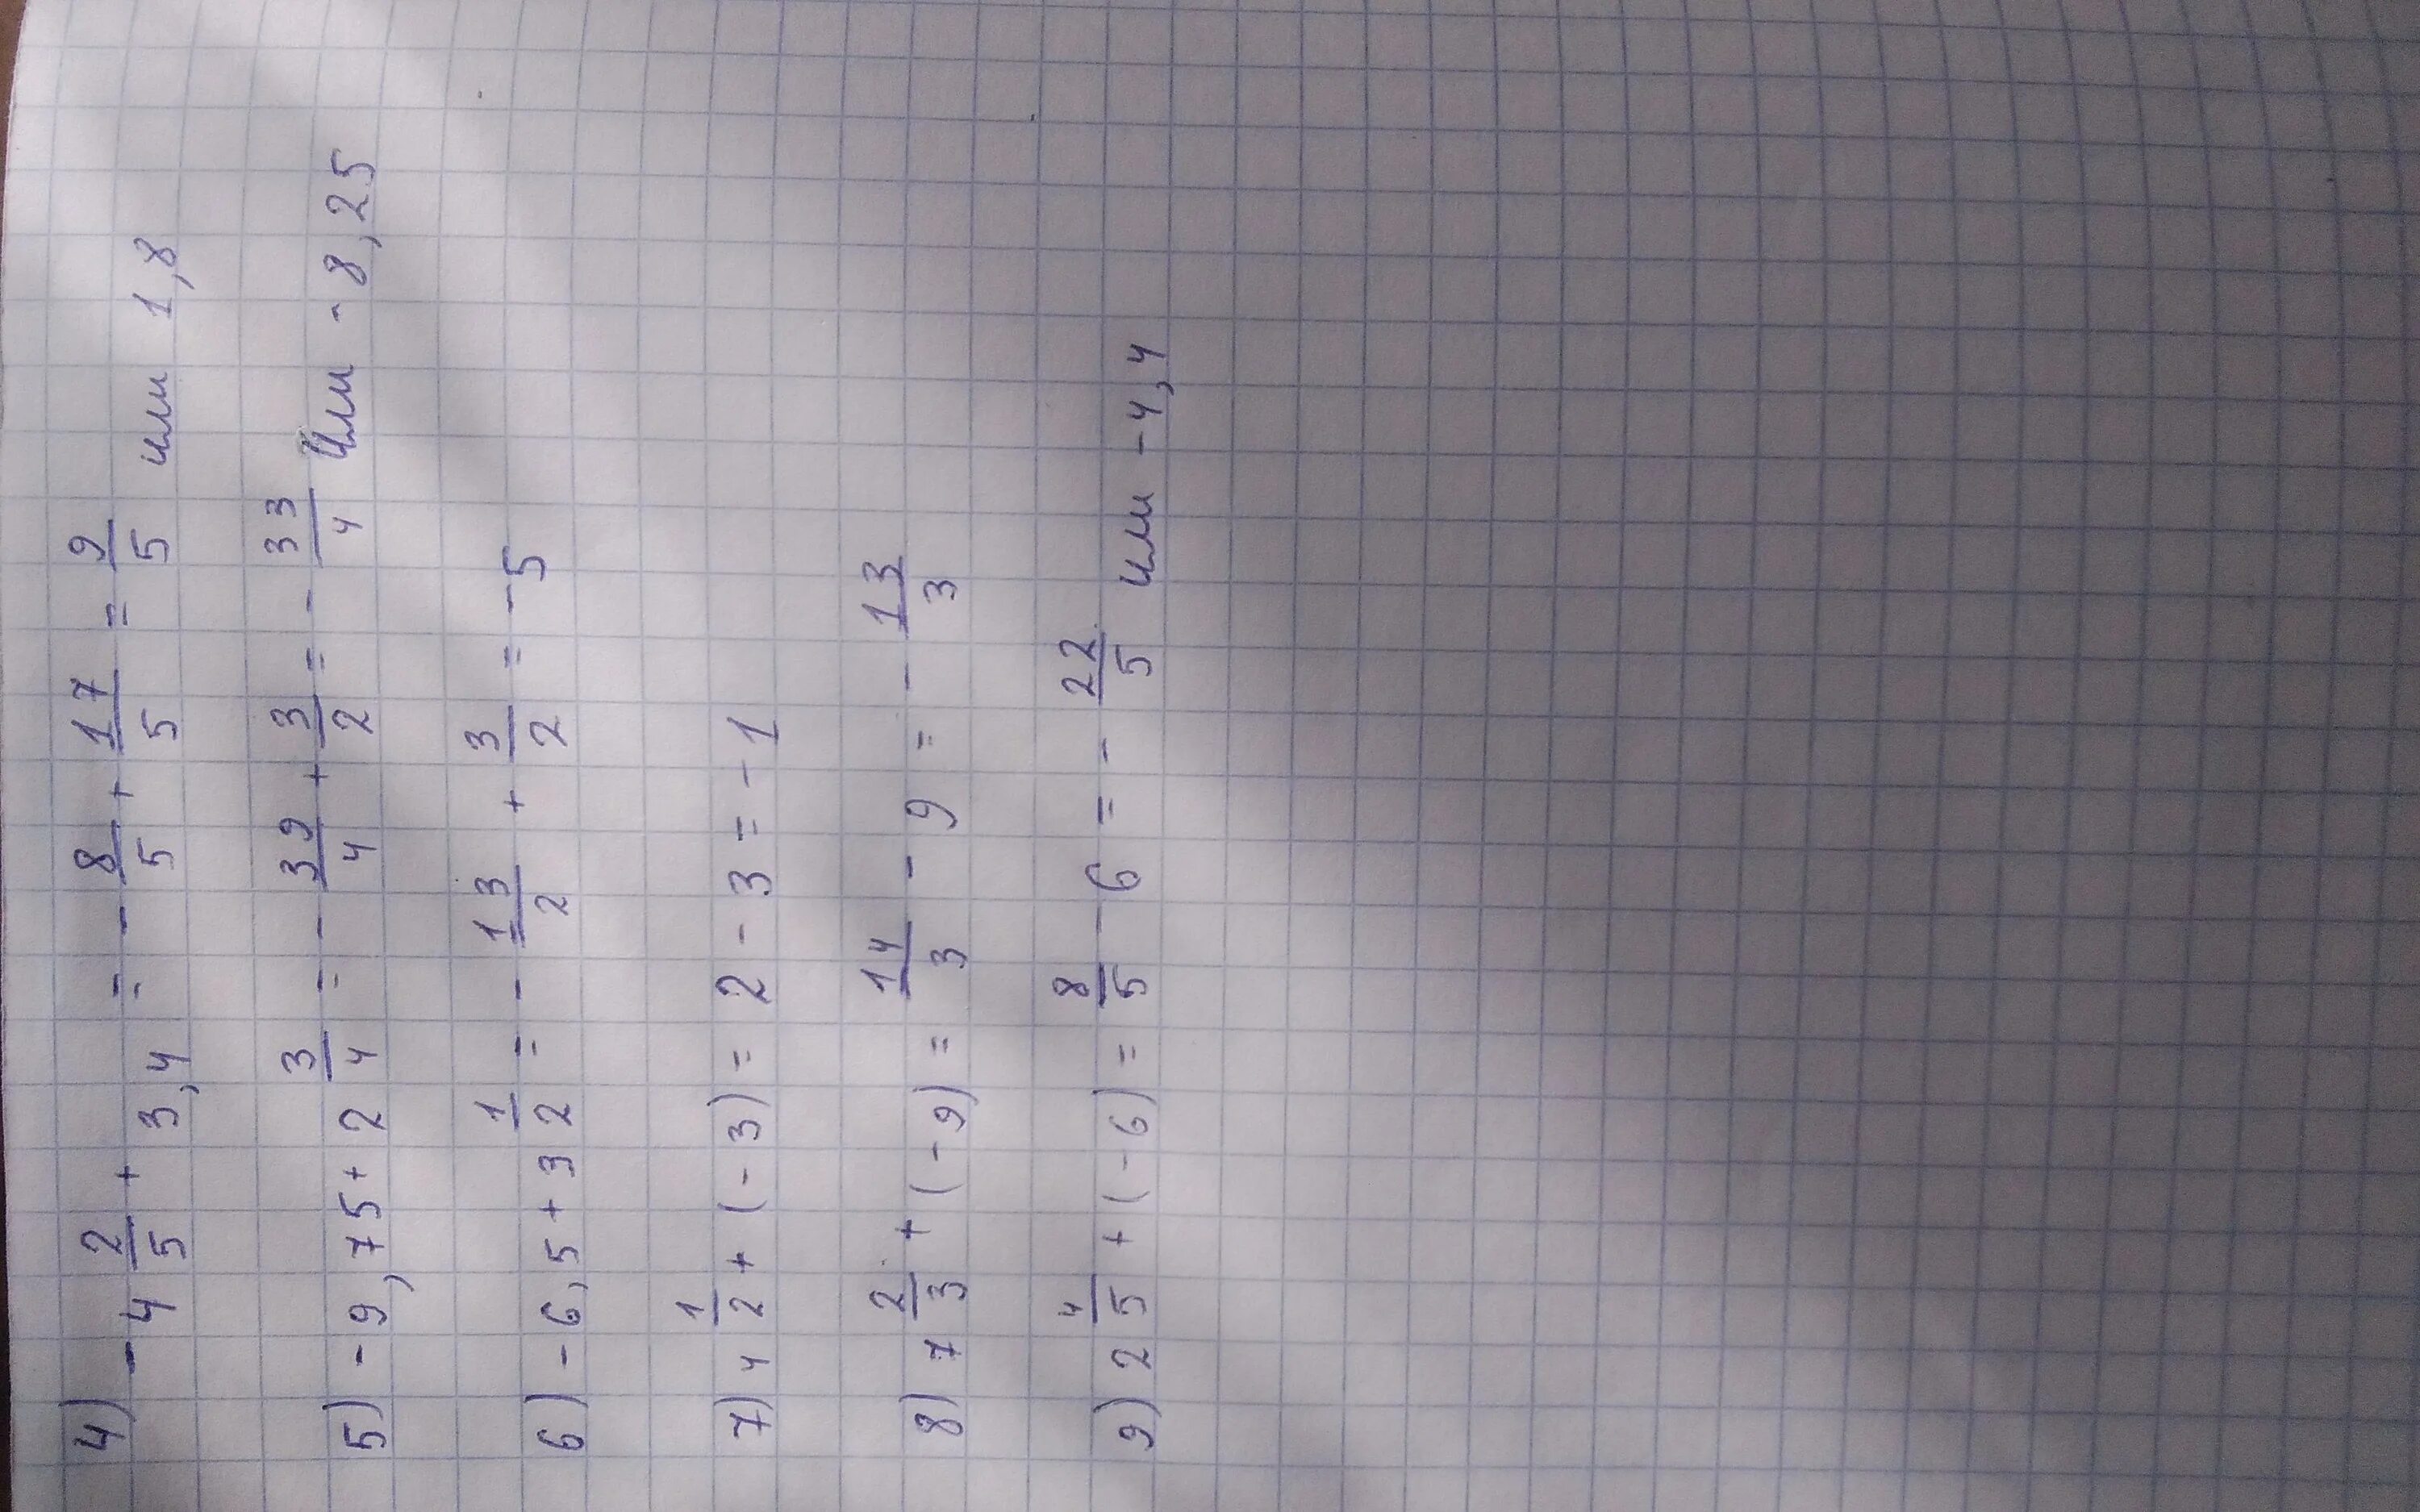 4) -4 2/5 + 3,4 = - 8/5 + 17/5 = 9/5 или 1,8
5) -9,75 + 2 3/4 = - 39/4 + 3/2 = - 33/4 или -8,25
6) -6,5 + 3 1/2 = - 13/2 + 3/2 = -5
7) 4 1/2 + (-3) = 2 - 3 = -1
8) 7 2/3 + (-9) = 14/3 - 9 = - 13/3
9) 2 4/5 + (-6) = 8/5 - 6 = - 22/5 или -4,4